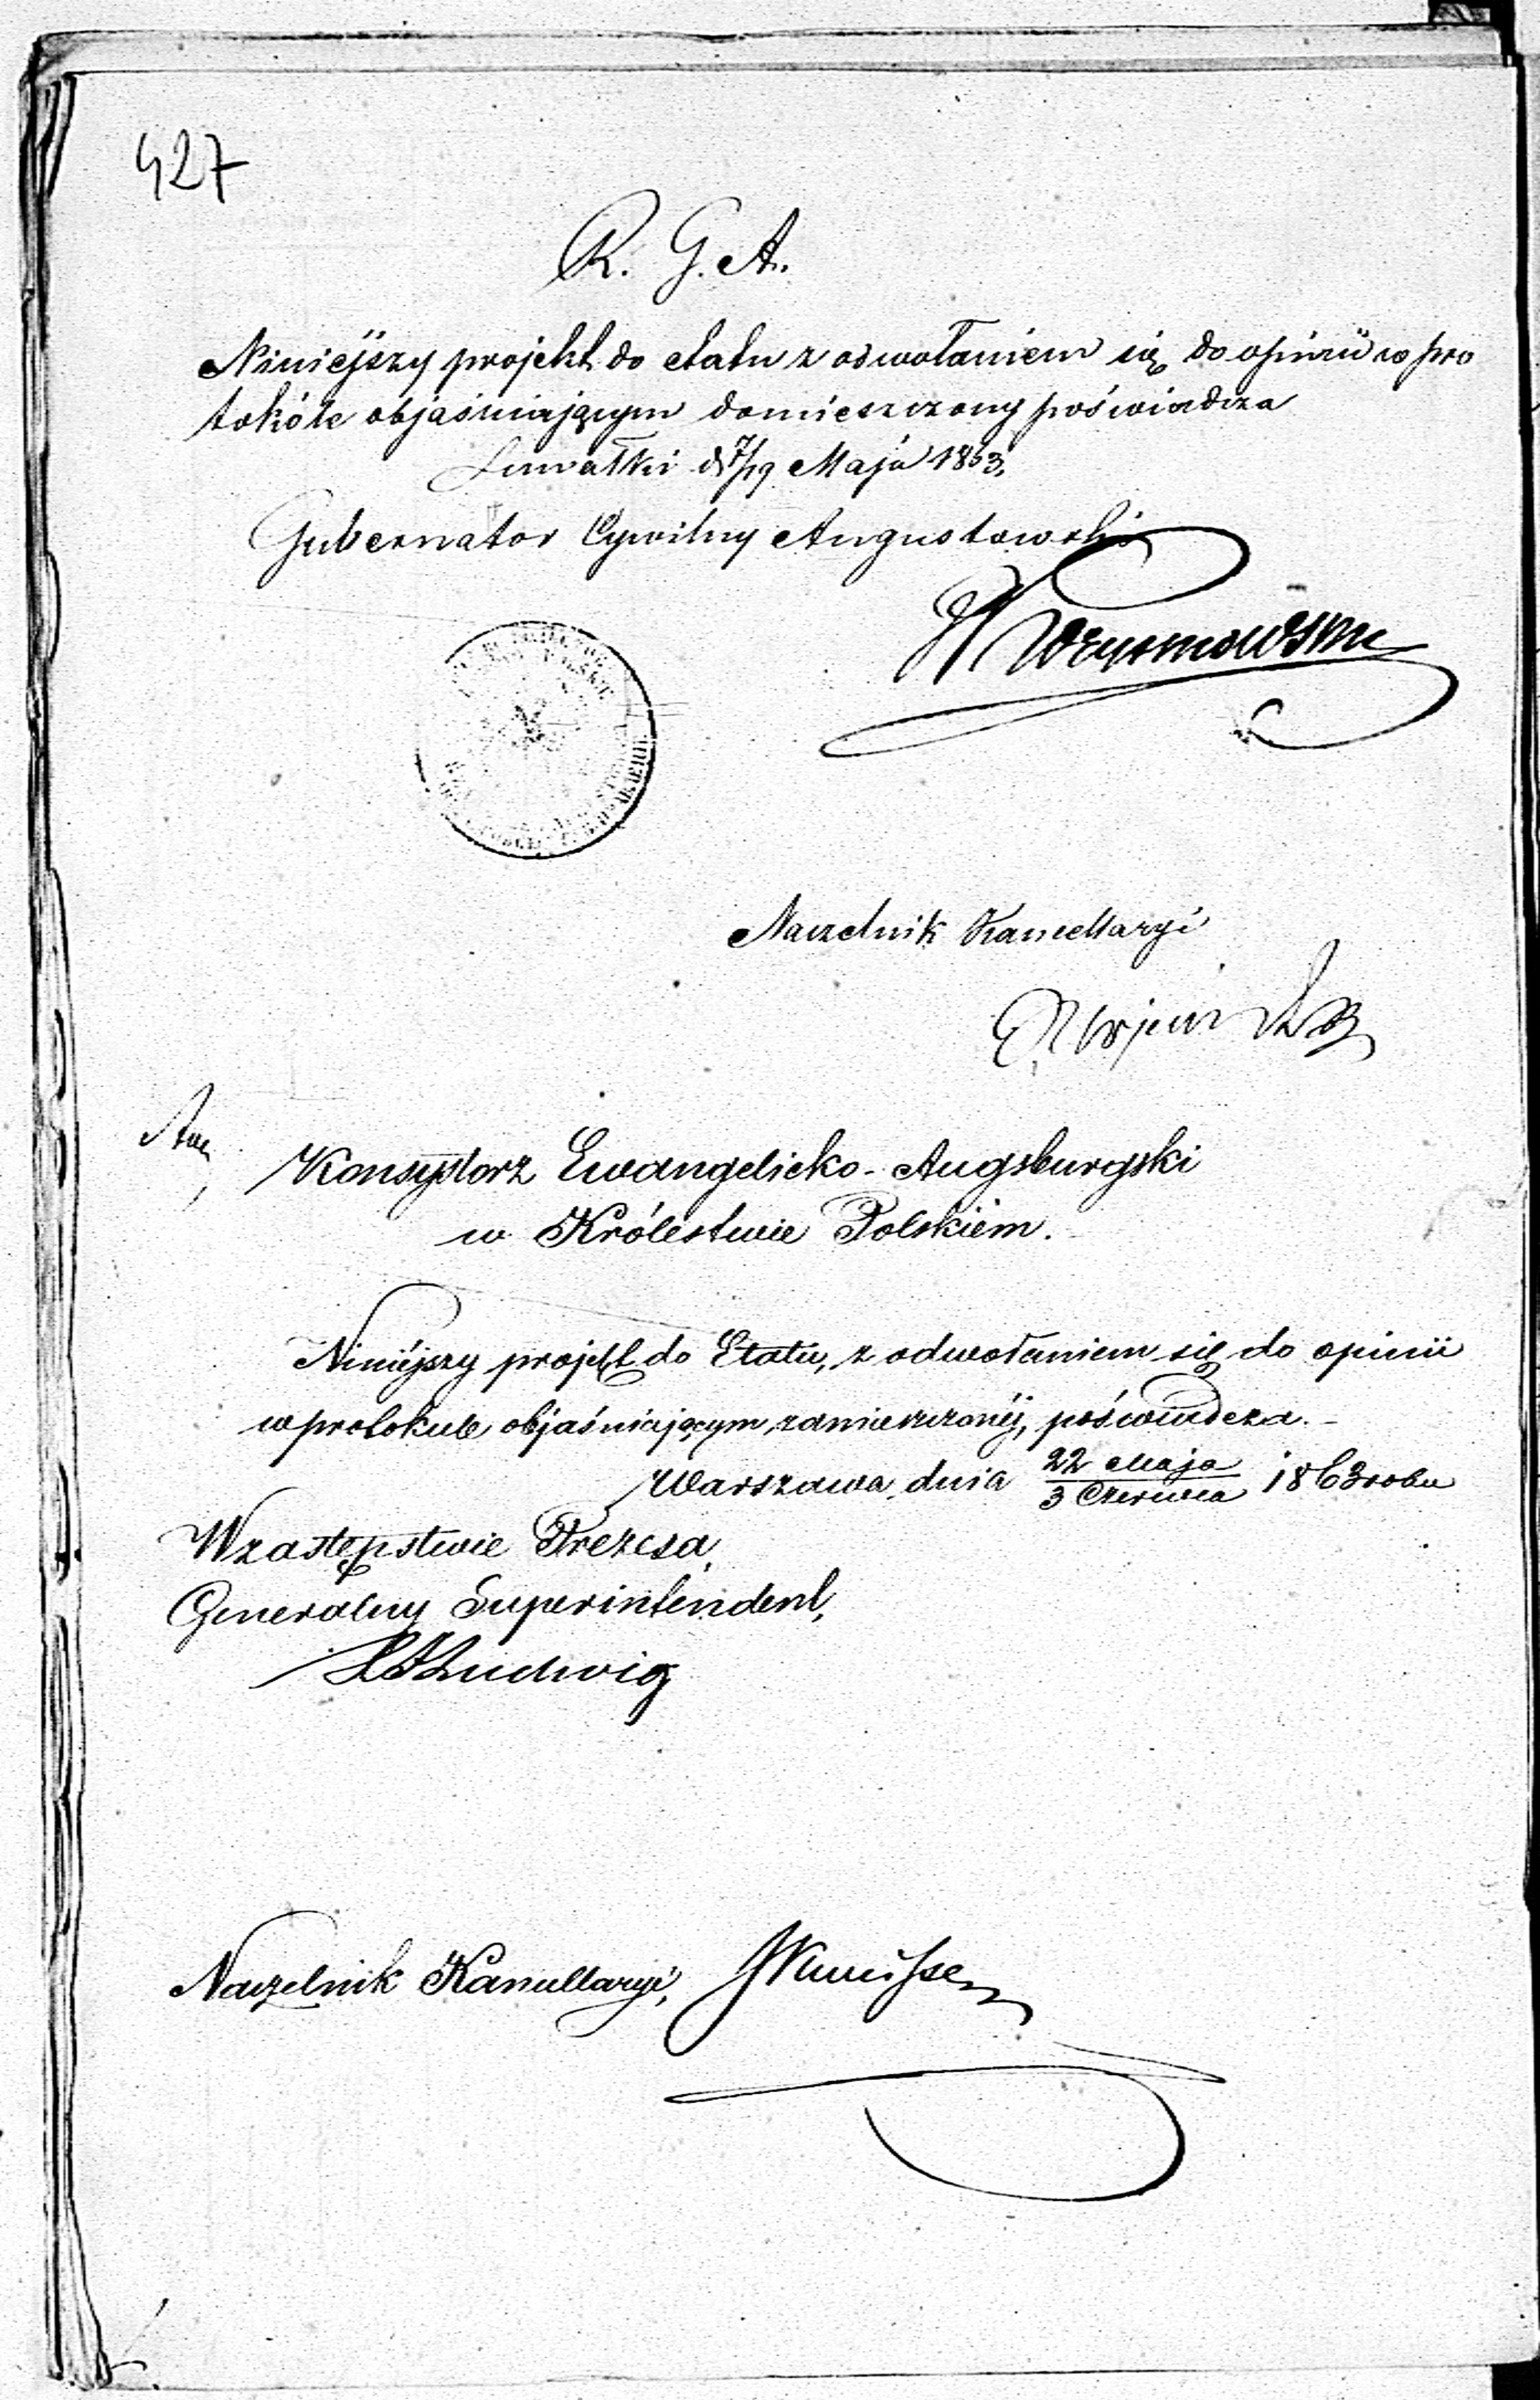 427
R. G. A.
Niniejszy projekt do etatu z odwołaniem się do opinii w pro
tokóle objaśniającym domieszczony poświadcza
Suwałki d 7/19 Maja 1863.
Gubernator Cywilny Augustowski
Naczelnik Kancellaryi
Konsystorz Ewangelicko-Augsburgski
w Królestwie Polskiém.
Niniéjszy projekt do Etatu, z odwołaniem się do opinii
w protokule objaśniającym, zamieszczonéj, poświadcza.-
Warszawa dnia 22 Maja / 3 Czerwca 1863 roku
W zastępstwie Prezesa,
Generalny Superintendent,
Ludwig
Naczelnik Kancellaryi,